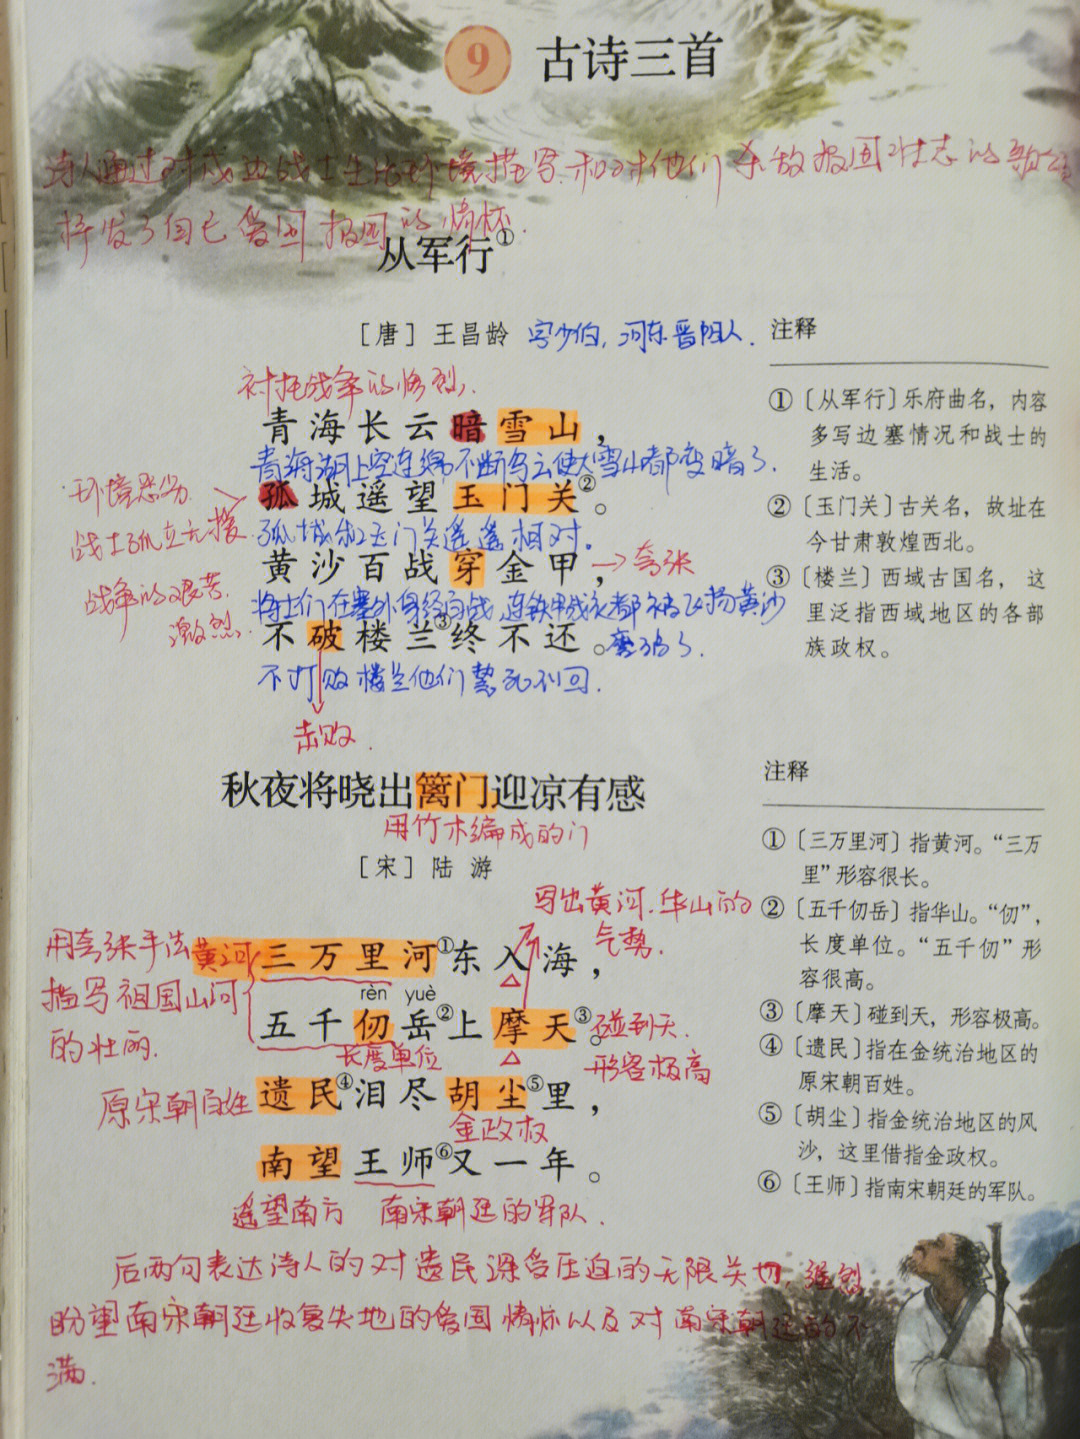 9 古诗三首
诗人通过对戍边战士生活环境描写.和对他们杀敌报国壮志的歌颂
抒发了自己爱国报国的情怀.
从军行①
[唐] 王昌龄 字少伯,河东晋阳人.
衬托战争的惨烈.
青海长云暗雪山,
青海湖上空连绵不断乌云使大雪山都变暗了.
环境恶劣.
战士孤立无援
战争的艰苦.
激烈.
孤城遥望玉门关②。
孤城和玉门关遥遥相对。
黄沙百战穿金甲, →夸张
将士们在塞外身经百战,连铁甲战衣都被飞扬黄沙
磨破了.
不破楼兰③终不还。
不打败楼兰他们誓死不回.
击败.
注释
①〔从军行〕乐府曲名，内容
多写边塞情况和战士的
生活。
②〔玉门关〕古关名，故址在
今甘肃敦煌西北。
③〔楼兰〕西域古国名，这
里泛指西域地区的各部
族政权。
秋夜将晓出篱门迎凉有感
用竹木编成的门
[宋] 陆游
写出黄河.华山的
气势.
用夸张手法
描写祖国山河
的壮丽.
黄河
三万里河①东入海,
rèn yuè
五千仞岳②上摩天③。
长度单位
碰到天.
形容极高
原宋朝百姓
遗民④泪尽胡尘⑤里,
金政权
南望王师⑥又一年。
遥望南方 南宋朝廷的军队.
后两句表达诗人的对遗民深受压迫的无限关切,强烈
盼望南宋朝廷收复失地的爱国情怀以及对南宋朝廷的不
满.
注释
①〔三万里河〕指黄河。“三万
里”形容很长。
②〔五千仞岳〕指华山。“仞”，
长度单位。“五千仞”形
容很高。
③〔摩天〕碰到天，形容极高。
④〔遗民〕指在金统治地区的
原宋朝百姓。
⑤〔胡尘〕指金统治地区的风
沙，这里借指金政权。
⑥〔王师〕指南宋朝廷的军队。